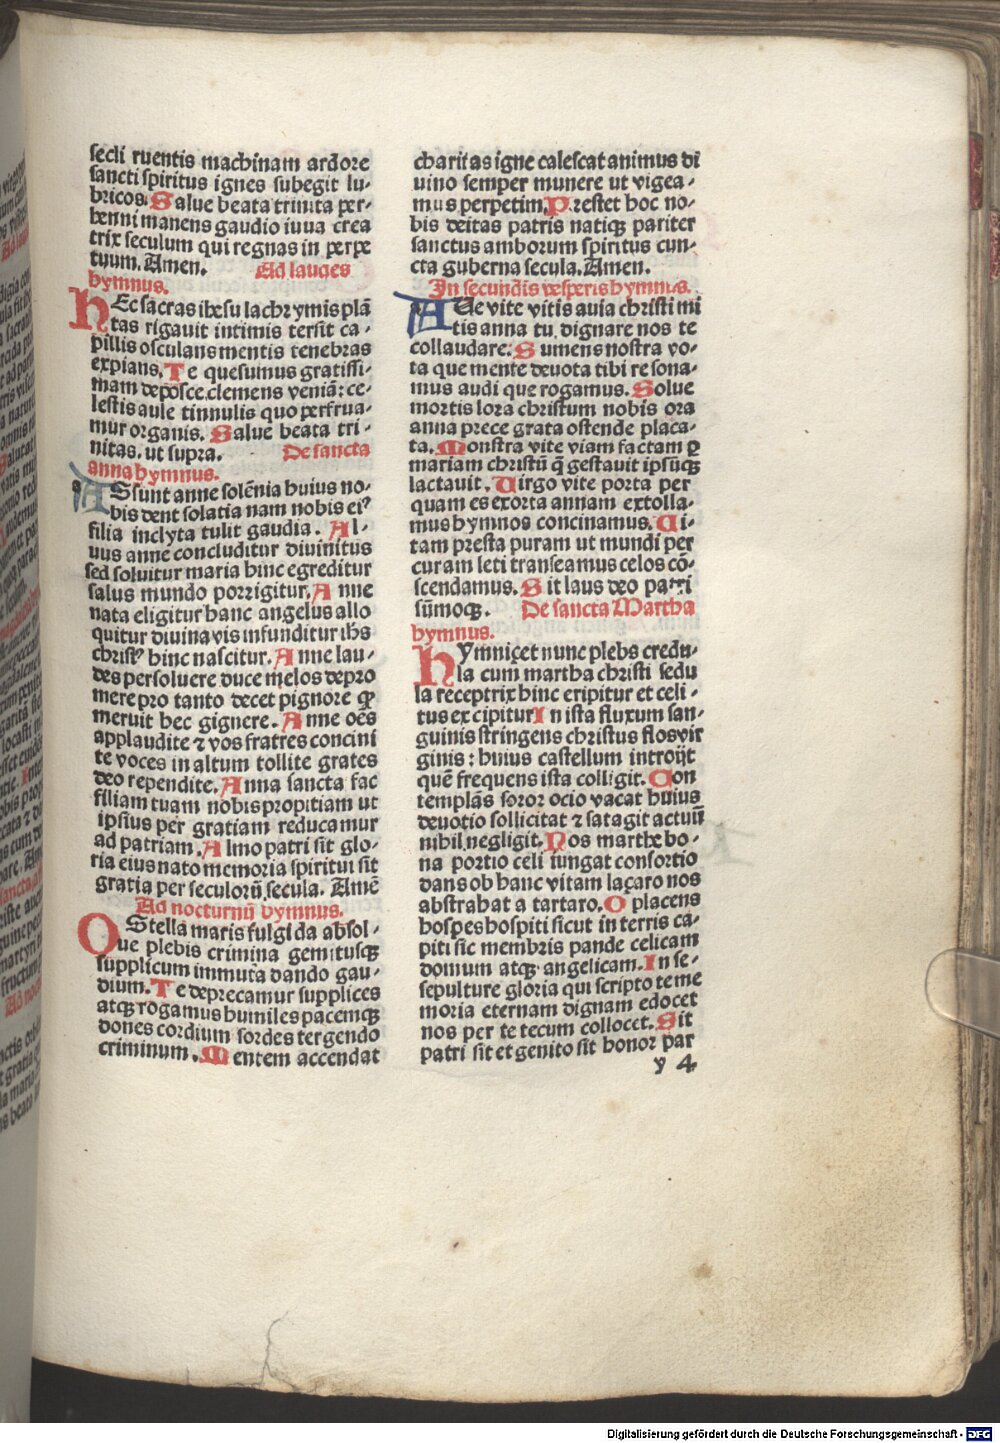 secli ruentis machinam ardore
sancti spiritus ignes subegit lu-
bricos. Salue beata trinita per-
henni manens gaudio iuua crea
trix seculum qui regnas in perpe
tuum. Amen. Ad laudes
hymnus.
HEc sacras ihesu lachrymis plā
tas rigauit intimis tersit ca-
pillis osculans mentis tenebras
expians. Te quesumus gratissi-
mam deposce clemens veniā: ce-
lestis aule tinnulis quo perfrua-
mur organis. Salue beata tri-
nitas. ut supra. De sancta
anna hymnus.
ASsunt anne solēnia huius no-
bis dent solatia nam nobis eiꝰ
filia inclyta tulit gaudia. Al-
uus anne concluditur diuinitus
sed soluitur maria hinc egreditur
salus mundo porrigitur. Anne
nata eligitur hanc angelus allo
quitur diuina vis infunditur ihs
christꝰ hinc nascitur. Anne lau-
des persoluere duce melos depro
mere pro tanto decet pignore ꝙ
meruit hec gignere. Anne oēs
applaudite ⁊ vos fratres concini
te voces in altum tollite grates
deo rependite. Anna sancta fac
filiam tuam nobis propitiam ut
ipsius per gratiam reducamur
ad patriam. Almo patri sit glo-
ria eius nato memoria spiritui sit
gratia per seculorū secula. Amē
Ad nocturnū hymnus.
OStella maris fulgida absol-
ue plebis crimina gemitusqꝫ
supplicum immuta dando gau-
dium. Te deprecamur supplices
atqꝫ rogamus humiles pacemqꝫ
dones cordium sordes tergendo
criminum. Mentem accendat
charitas igne calescat animus di
uino semper munere ut vigea-
mus perpetim. Prestet hoc no-
bis deitas patris natiqꝫ pariter
sanctus amborum spiritus cun-
cta guberna secula. Amen.
In secundis vesperis hymnus.
AUe vite vitis auia christi mi
tis anna tu dignare nos te
collaudare. Sumens nostra vo-
ta que mente deuota tibi resona-
mus audi que rogamus. Solue
mortis lora christum nobis ora
anna prece grata ostende placa-
ta. Monstra vite viam factam ꝑ
mariam christū q̄ gestauit ipsūqꝫ
lactauit. Uirgo vite porta per
quam es exorta annam extolla-
mus hymnos concinamus. Ui-
tam presta puram ut mundi per
curam leti transeamus celos cō-
scendamus. Sit laus deo patri
sūmoqꝫ. De sancta Martha
hymnus.
HYmnicet nunc plebs credu-
la cum martha christi sedu
la receptrix hinc eripitur et celi-
tus excipitur In ista fluxum san-
guinis stringens christus flos vir
ginis: huius castellum introijt
quē frequens ista colligit. Con
templās soror ocio vacat huius
deuotio sollicitat ⁊ satagit actuū
nihil negligit. Nos marthe bo-
na portio celi iungat consortio
dans ob hanc vitam laçaro nos
abstrahat a tartaro. O placens
hospes hospiti sicut in terris ca-
piti sic membris pande celicam
domum atqꝫ angelicam. In se-
sepulture gloria qui scripto te me
moria eternam dignam edocet
nos per te tecum collocet. Sit
patri sit et genito sit honor par
y 4
Digitalisierung gefördert durch die Deutsche Forschungsgemeinschaft - DFG